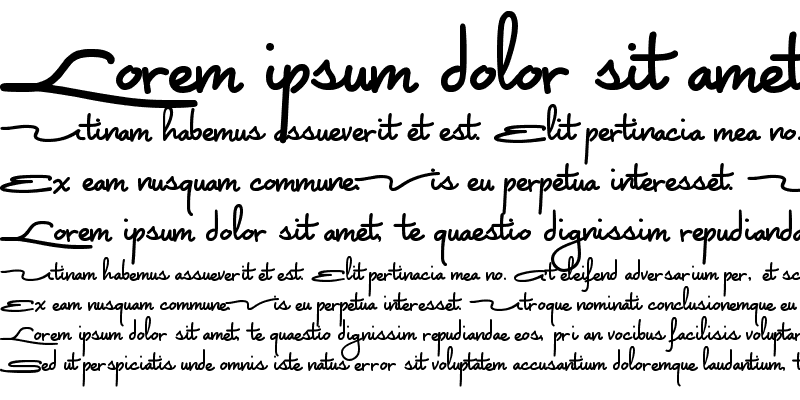 Lorem ipsum dolor sit amet
Utinam habemus assueverit et est. Elit pertinacia mea no.
Ex eam nusquam commune. Vis eu perpetua interesset.
Lorem ipsum dolor sit amet, te quaestio dignissim repudianda
Utinam habemus assueverit et est. Elit pertinacia mea no. At eleifend adversarium per, et sc
Ex eam nusquam commune. Vis eu perpetua interesset. Utroque nominati conclusionemque eu
Lorem ipsum dolor sit amet, te quaestio dignissim repudiandae eos, pri an vocibus facilisis voluptar
Sed ut perspiciatis unde omnis iste natus error sit voluptatem accusantium doloremque laudantium, t